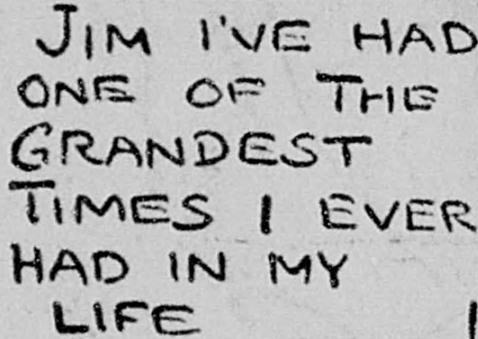 JIM I'VE HAD
ONE OF THE
GRANDEST
TIMES I EVER
HAD IN MY
LIFE